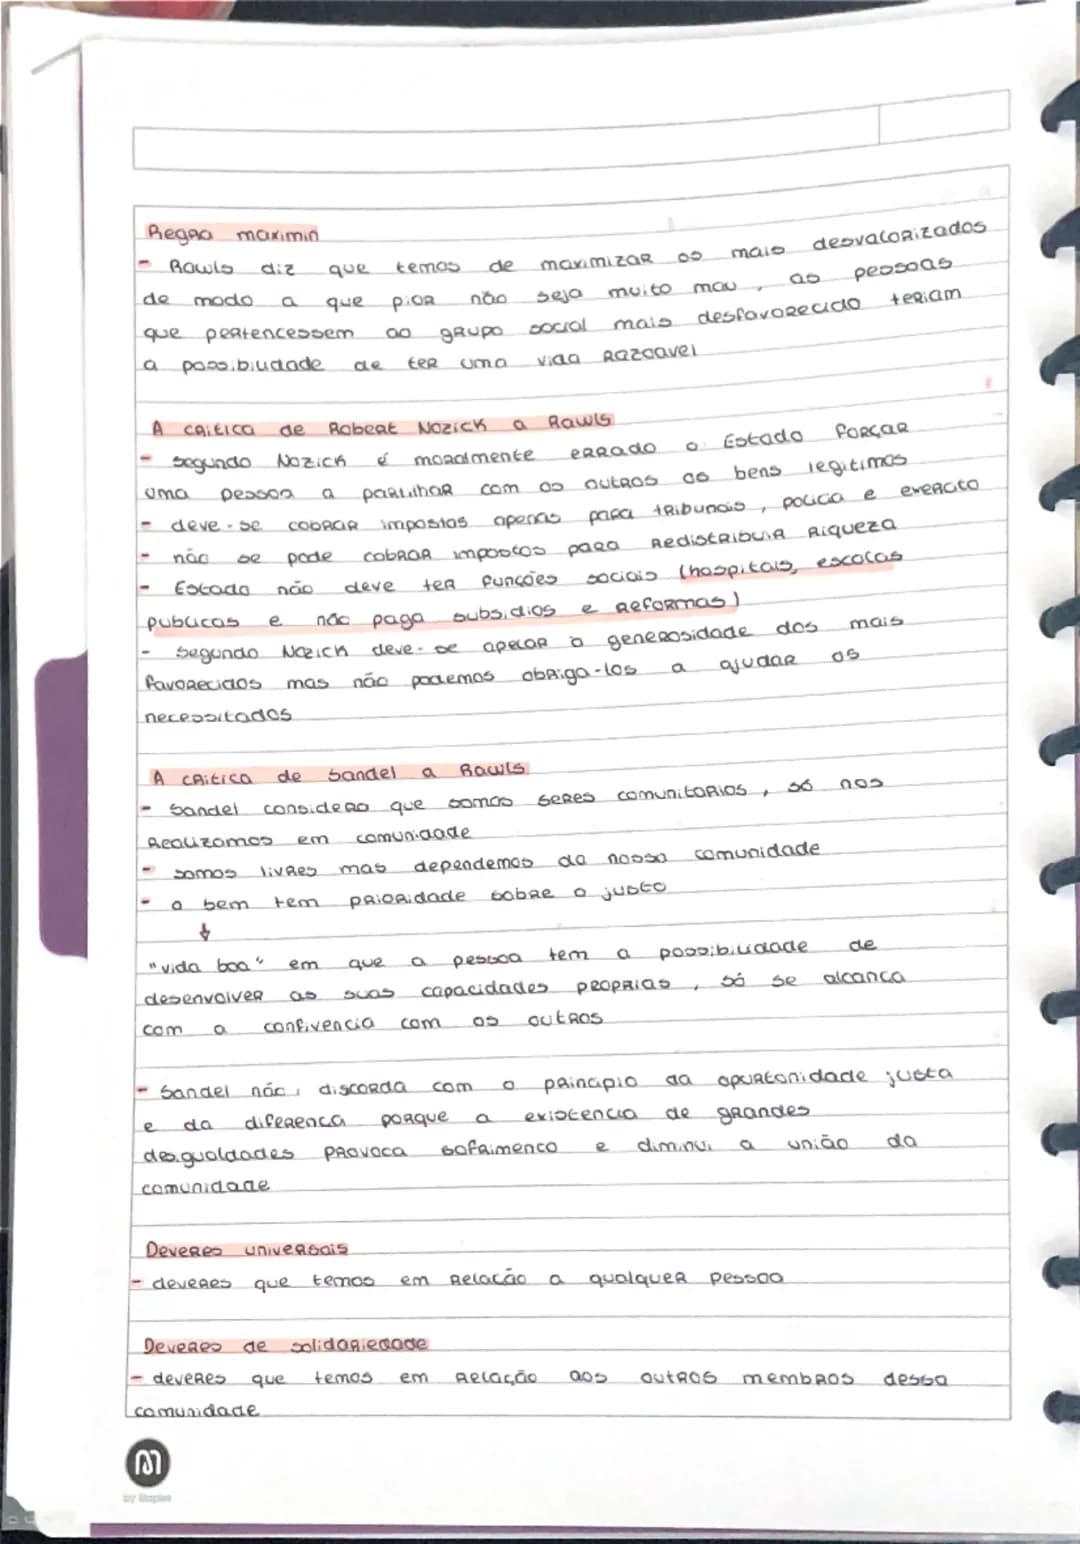 Regra maximin
- Rawls diz que temos de maximizar os mais desvalorizados
de modo a que pior não seja muito mau, as pessoas
que pertencessem ao grupo social mais desfavorecido teriam
a possibilidade de ter uma vida razoavel
A critica de Robert Nozick a Rawls
- segundo Nozick é moralmente errado o Estado forçar
uma pessoa a partilhar com os outros os bens legitimos
- deve-se cobrar impostos apenas para tribunais, policia e exercito
- não se pode cobrar impostos para redistribuir riqueza
- Estado não deve ter funções sociais (hospitais, escolas
publicas e não paga subsidios e reformas)
- segundo Nozick deve-se apelar à generosidade dos mais
favorecidos mas não podemos obriga-los a ajudar os
necessitados
A critica de Sandel a Rawls
- Sandel considera que somos seres comunitarios, só nos
realizamos em comunidade
- somos livres mas dependemos da nossa comunidade
- o bem tem prioridade sobre o justo
↓
"vida boa" em que a pessoa tem a possibilidade de
desenvolver as suas capacidades proprias, só se alcança
com a confivencia com os outros
- Sandel não discorda com o principio da oportonidade justa
e da diferença porque a existencia de grandes
desigualdades provoca sofrimenco e diminui a união da
comunidade
Deveres universais
- deveres que temos em relação a qualquer pessoa
Deveres de solidariedade
- deveres que temos em relação aos outros membros dessa
comunidade
by Staples